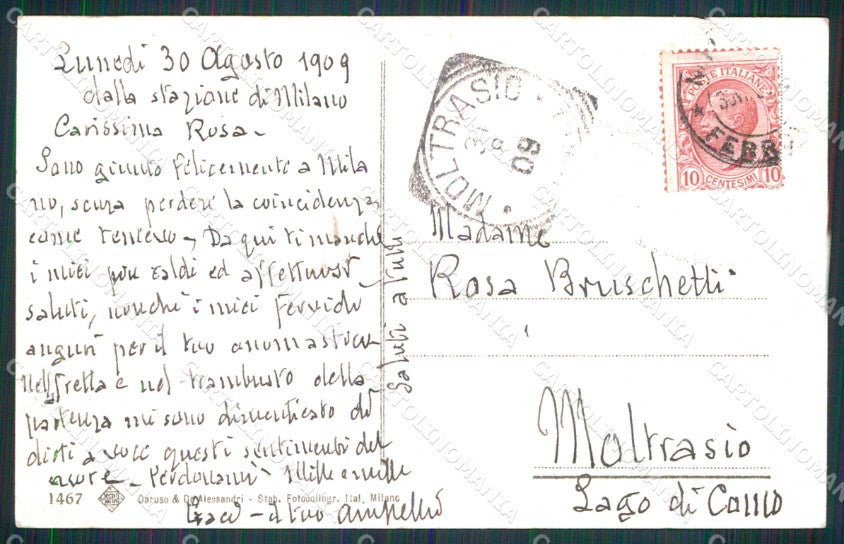 Lunedì 30 Agosto 1909
dalla stazione di Milano
Carissima Rosa -
Sono giunto felicemente a Mila
no, senza perdere la coincidenza
come temevo - Da qui ti mando
i miei più caldi ed affettuosi
saluti, nonché i miei fervidi
auguri per il tuo onomastico
Nella fretta e nel trambusto della
partenza mi sono dimenticato di
dirti a voce questi sentimenti del
cuore - Perdonami Mille e mille
baci - il tuo
Saluti a tutti
1467
Caruso & De Alessandri - Stab. Fotocollogr. Ital. Milano
MOLTRASIO
30
09
POSTE ITALIANE
10 CENTESIMI 10
Madame
Rosa Bruschetti
Moltrasio
Lago di Como
CARTOLINOMANIA